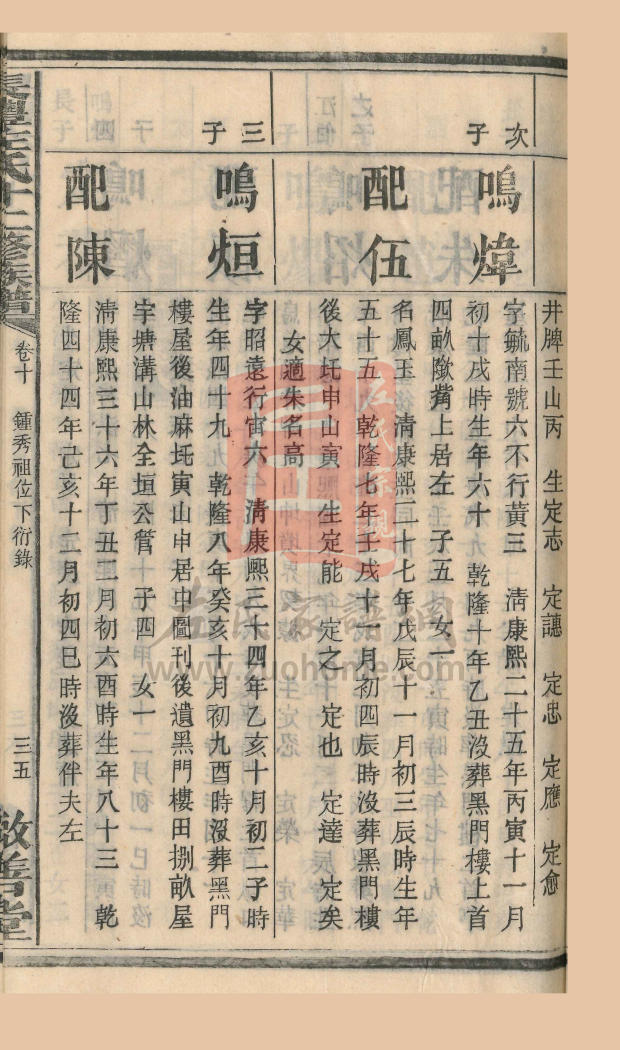 井牌壬山丙 生定志 定譓 定忠 定應 定愈
次子
鳴煒
字毓南號六不行黃三 清康熙二十五年丙寅十一月
初十戌時生年六十 乾隆十年乙丑沒葬黑門樓上首
四畝墩背上居左 子五 女一
配伍
名鳳玉 清康熙二十七年戊辰十一月初三辰時生年
五十五 乾隆七年壬戌十一月初四辰時沒葬黑門樓
後大坵申山寅 生定能 定之 定也 定達 定矣
女適朱名高
三子
鳴烜
字昭遠行宙六 清康熙三十四年乙亥十月初二子時
生年四十九 乾隆八年癸亥十月初九酉時沒葬黑門
樓屋後油麻坵寅山申居中圖刊後遺黑門樓田捌畝屋
宇塘溝山林全垣公管 子四 女一
配陳
清康熙三十六年丁丑三月初六酉時生年八十三 乾
隆四十四年己亥十二月初四巳時沒葬伴夫左
左氏十二修族譜
卷十 鍾秀祖位下衍錄
三五
啟善堂
左氏家譜網
www.zuohome.com